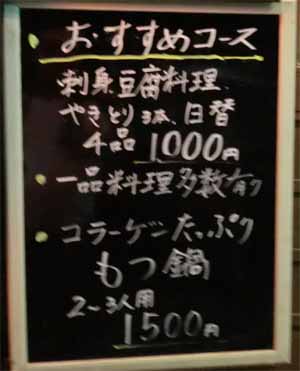 おすすめコース
刺身豆腐料理、
やきとり3本、日替
4品 1000円
一品料理多数有り
コラーゲンたっぷり
もつ鍋
2～3人用
1500円